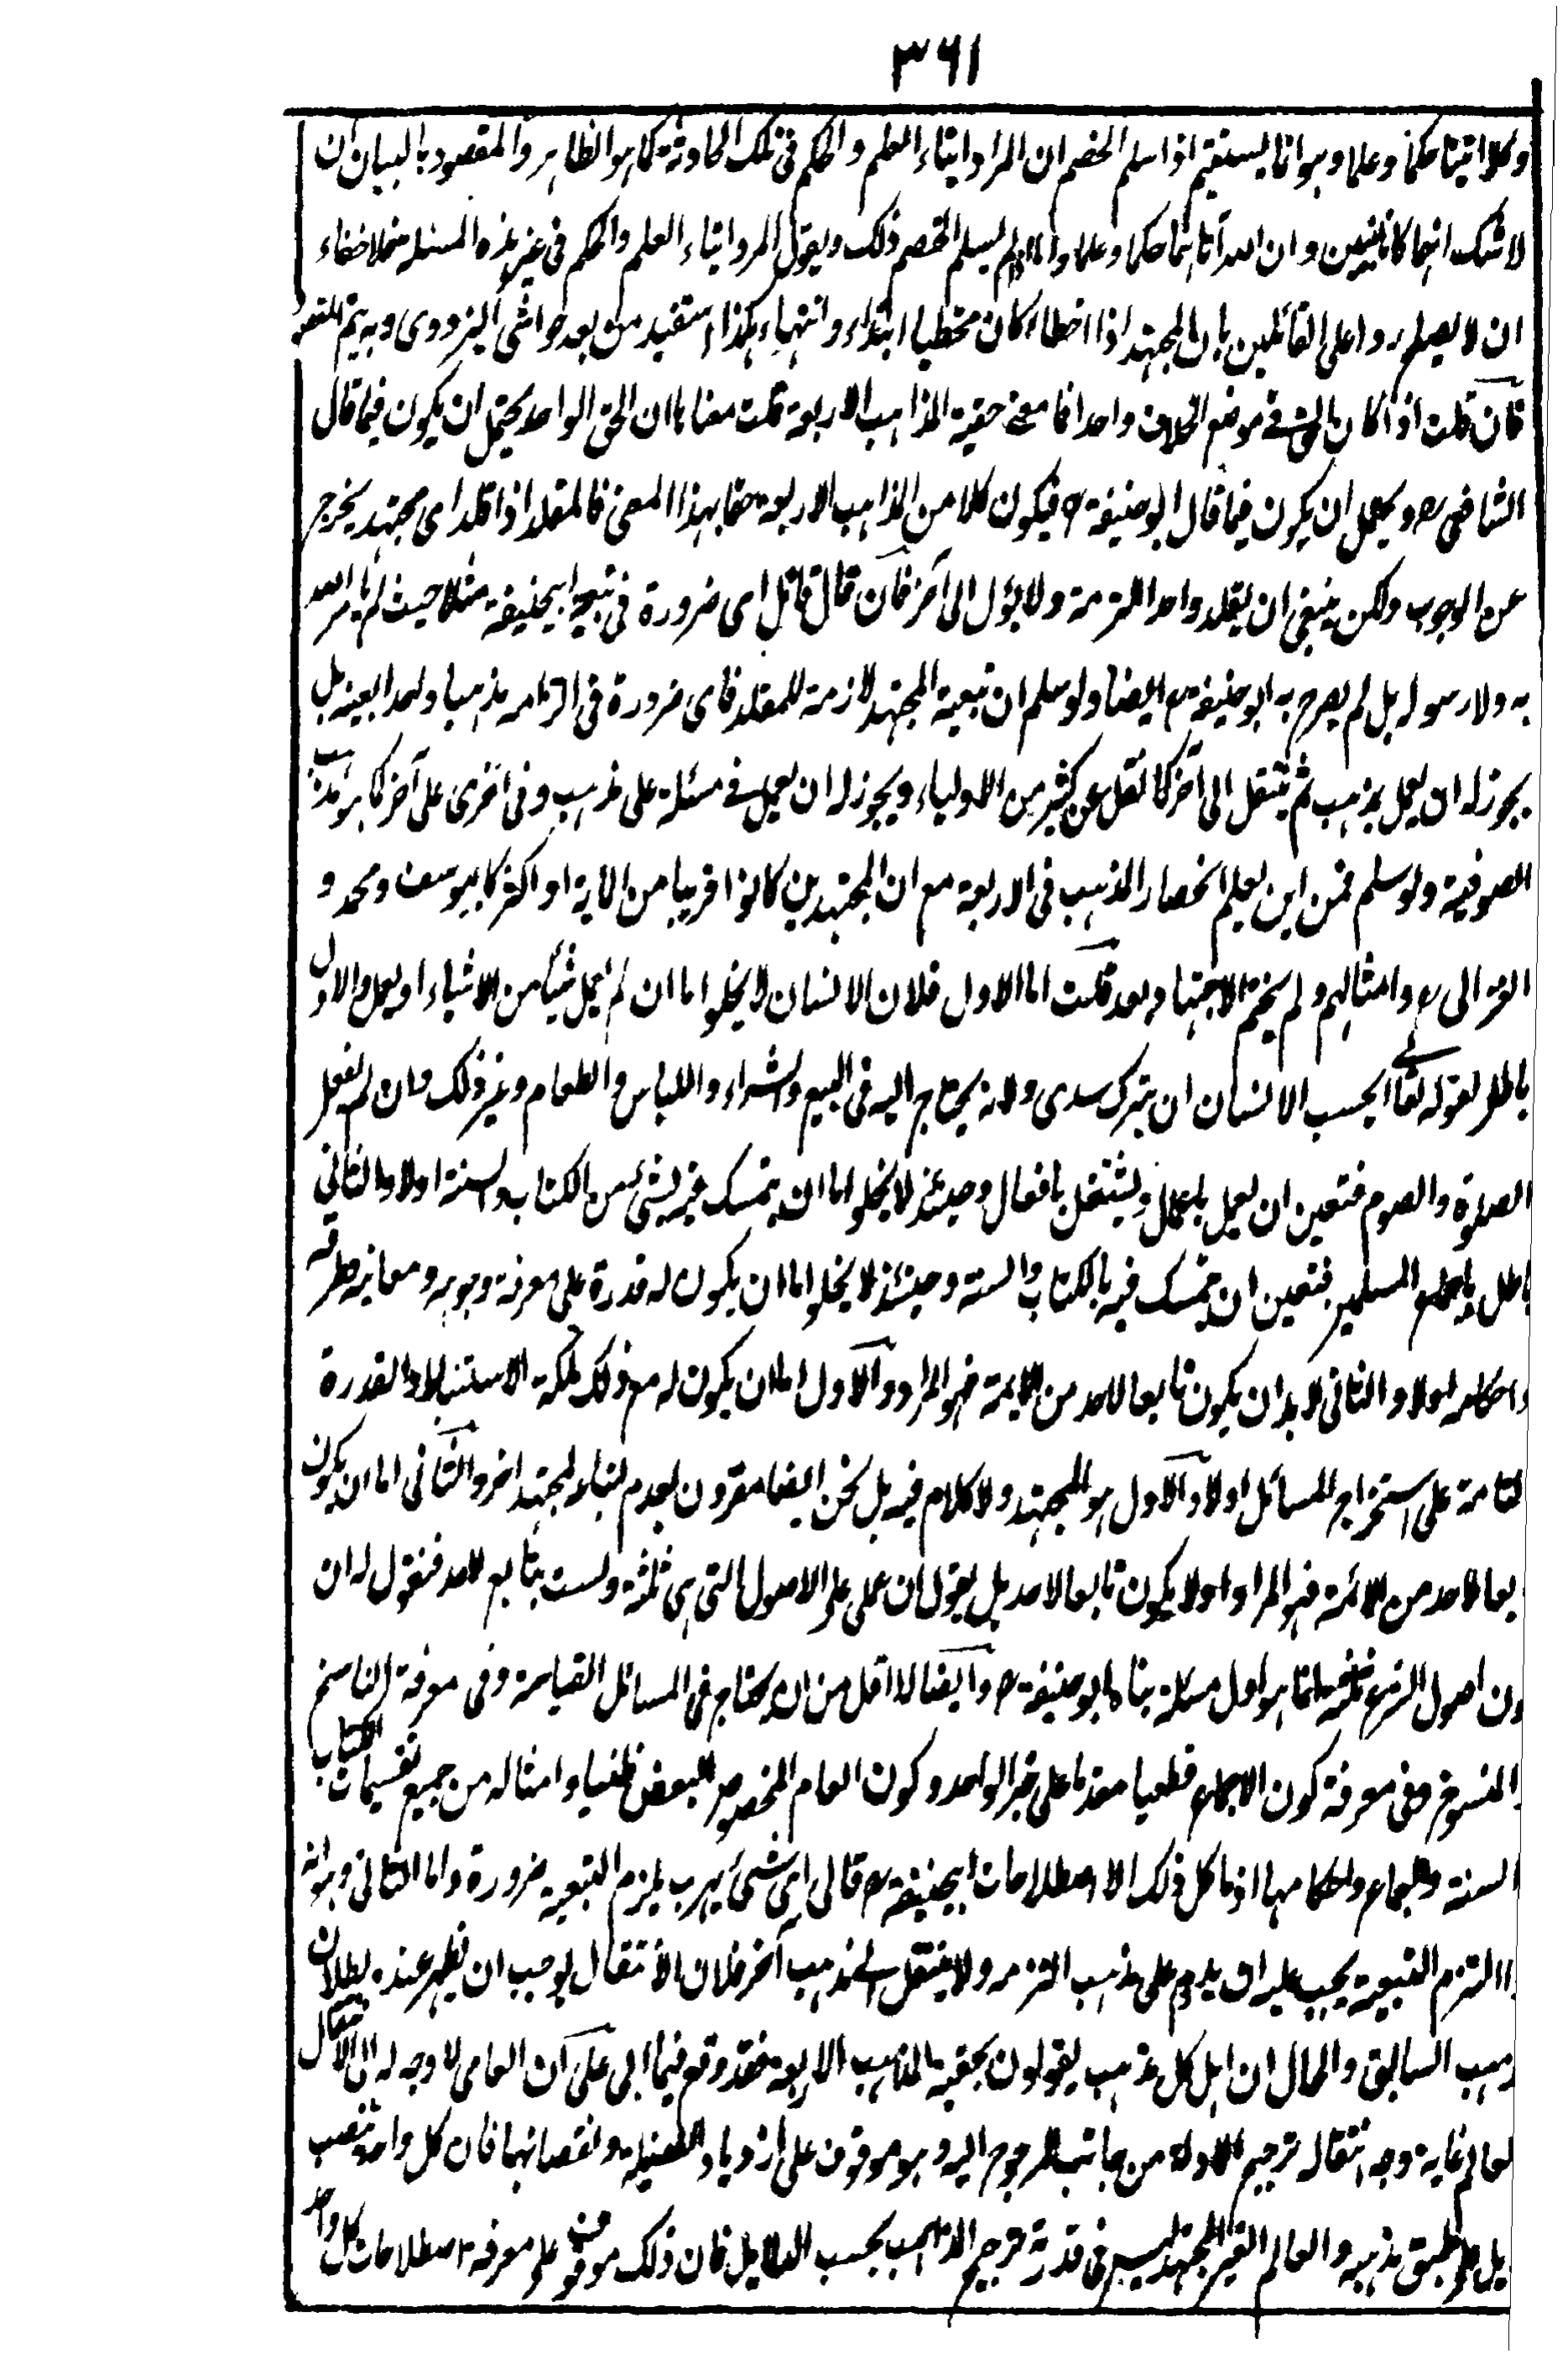 ٣٦١
وكلا اتينا حكما وعلما وهو انما يستقيم اذا سلم الخصم ان المراد ايتاء العلم والحكم فى تلك الحادثة كما هو الظاهر والمقصود بالبيان ان
لا شك انهما كانا نبيين وان الله آتاهما حكما وعلما واما اذا لم يسلم الخصم ذلك ويقول المراد ايتاء العلم والحكم فى غير هذه المسئلة فلا خفاء
ان لا يصلح ردا على القائلين بان المجتهد اذا اخطاء كان مخطيا ابتداء وانتهاء هكذا استفيد من بعد حواشى البزدوى وبه يتم المقصود
فان قلت اذا كان الحق فى موضع الخلاف واحدا فما معنى حقية المذاهب الاربعة قلت معناها ان الحق الواحد يحتمل ان يكون فيما قال
الشافعى رح ويحتمل ان يكون فيما قال ابو حنيفة رح فيكون كلا من المذاهب الاربعة حقا بهذا المعنى فالمقلد اذا قلد اى مجتهد يخرج
عن الوجوب ولكن ينبغى ان يقلد واحدا التزمه ولا يؤل الى آخر فان قال قائل اى ضرورة فى تبعية ابيحنيفة مثلا حيث لم يامر الله
به ولا رسوله بل لم يصرح به ابو حنيفة رح ايضا ولو سلم ان تبعية المجتهد لازمة للمقلد فاى ضرورة فى التزامه مذهبا واحدا بعينه بل
يجوز له ان يعمل بمذهب ثم ينتقل الى آخر كما نقل عن كثير من الاولياء ويجوز له ان يعمل فى مسئلة على مذهب وفى اخرى على آخر كما هو مذهب
الصوفية ولو سلم فمن اين يعلم انحصار المذهب فى الاربعة مع ان المجتهدين كانوا قريبا من الماية او اكثر كابييوسف ومحمد و
الغزالى رح وامثالهم ولم يختم الاجتهاد بعد قلت اما الاول فلان الانسان لا يخلو اما ان لم يعمل شيأ من الاشياء او يعمل والاول
باطل لقوله تعالى ايحسب الانسان ان يترك سدى ولانه يحتاج اليه فى البيع والشراء واللباس والطعام وغير ذلك وان لم يفعل
الصلوة والصوم فتعين ان يعمل باعمال ويشتغل بافعال وحينئذ لا يخلو اما ان يتمسك فيه بشئ من الكتاب والسنة اولا والثانى
باطل باجماع المسلمين فتعين ان يتمسك فيه بالكتاب والسنة وحينئذ لا يخلو اما ان يكون له قدرة على معرفة وجوهه ومعانيه وطرقه
واحكامه اولا والثانى لا بد ان يكون تابعا لاحد من الائمة فهو المراد والاول اما ان يكون له مع ذلك ملكة الاستنباط والقدرة
التامة على استخراج المسائل اولا والاول هو المجتهد ولا كلام فيه بل نحن ايضا مقرون بعدم اتباعه لمجتهد اخر والثانى اما ان يكون
بعا لاحد من الائمة فهو المراد اولا يكون تابعا لاحد بل يقول ان عملى على الاصول التى هى ثلثة ولست بتابع لاحد فنقول له ان
ون اصول الشرع ثلثة انما هو اول مسئلة بناها ابو حنيفة رح وايضا لا اقل من ان يحتاج فى المسائل القياسية وفى معرفة الناسخ
المنسوخ وفى معرفة كون الاجماع قطعيا مقدما على خبر الواحد وكون العام المخصوص البعض ظنيا وامثاله من جميع تقسيمات الكتاب
السنة والاجماع واحكامها اذ ما كل ذلك الا اصطلاحات ابيحنيفة رح فالى اى شئ يهرب يلزم التبعية ضرورة واما الثانى وهو انه
اذا التزم التبعية يجب عليه ان يدوم على مذهب التزمه ولا ينتقل الى مذهب آخر فلان الانتقال يوجب ان يظهر عنده بطلان
ذهب السابق والحال ان اهل كل مذهب يقولون بحقية المذاهب الاربعة فقد وقع فيما ابى على ان العامى لا وجه له الى الانتقال
لعالم غاية وجه انتقاله ترجيح الادلة من جانب المرجوح اليه وهو موقوف على ازدياد الفضيلة ونقصانها فان كل واحد ينصب
يل على طبق مذهبه والعالم الغير المجتهد ليس فى قدرته ترجيح المذاهب بحسب الدلايل فان ذلك موقوف على معرفة اصطلاحات كل واحد